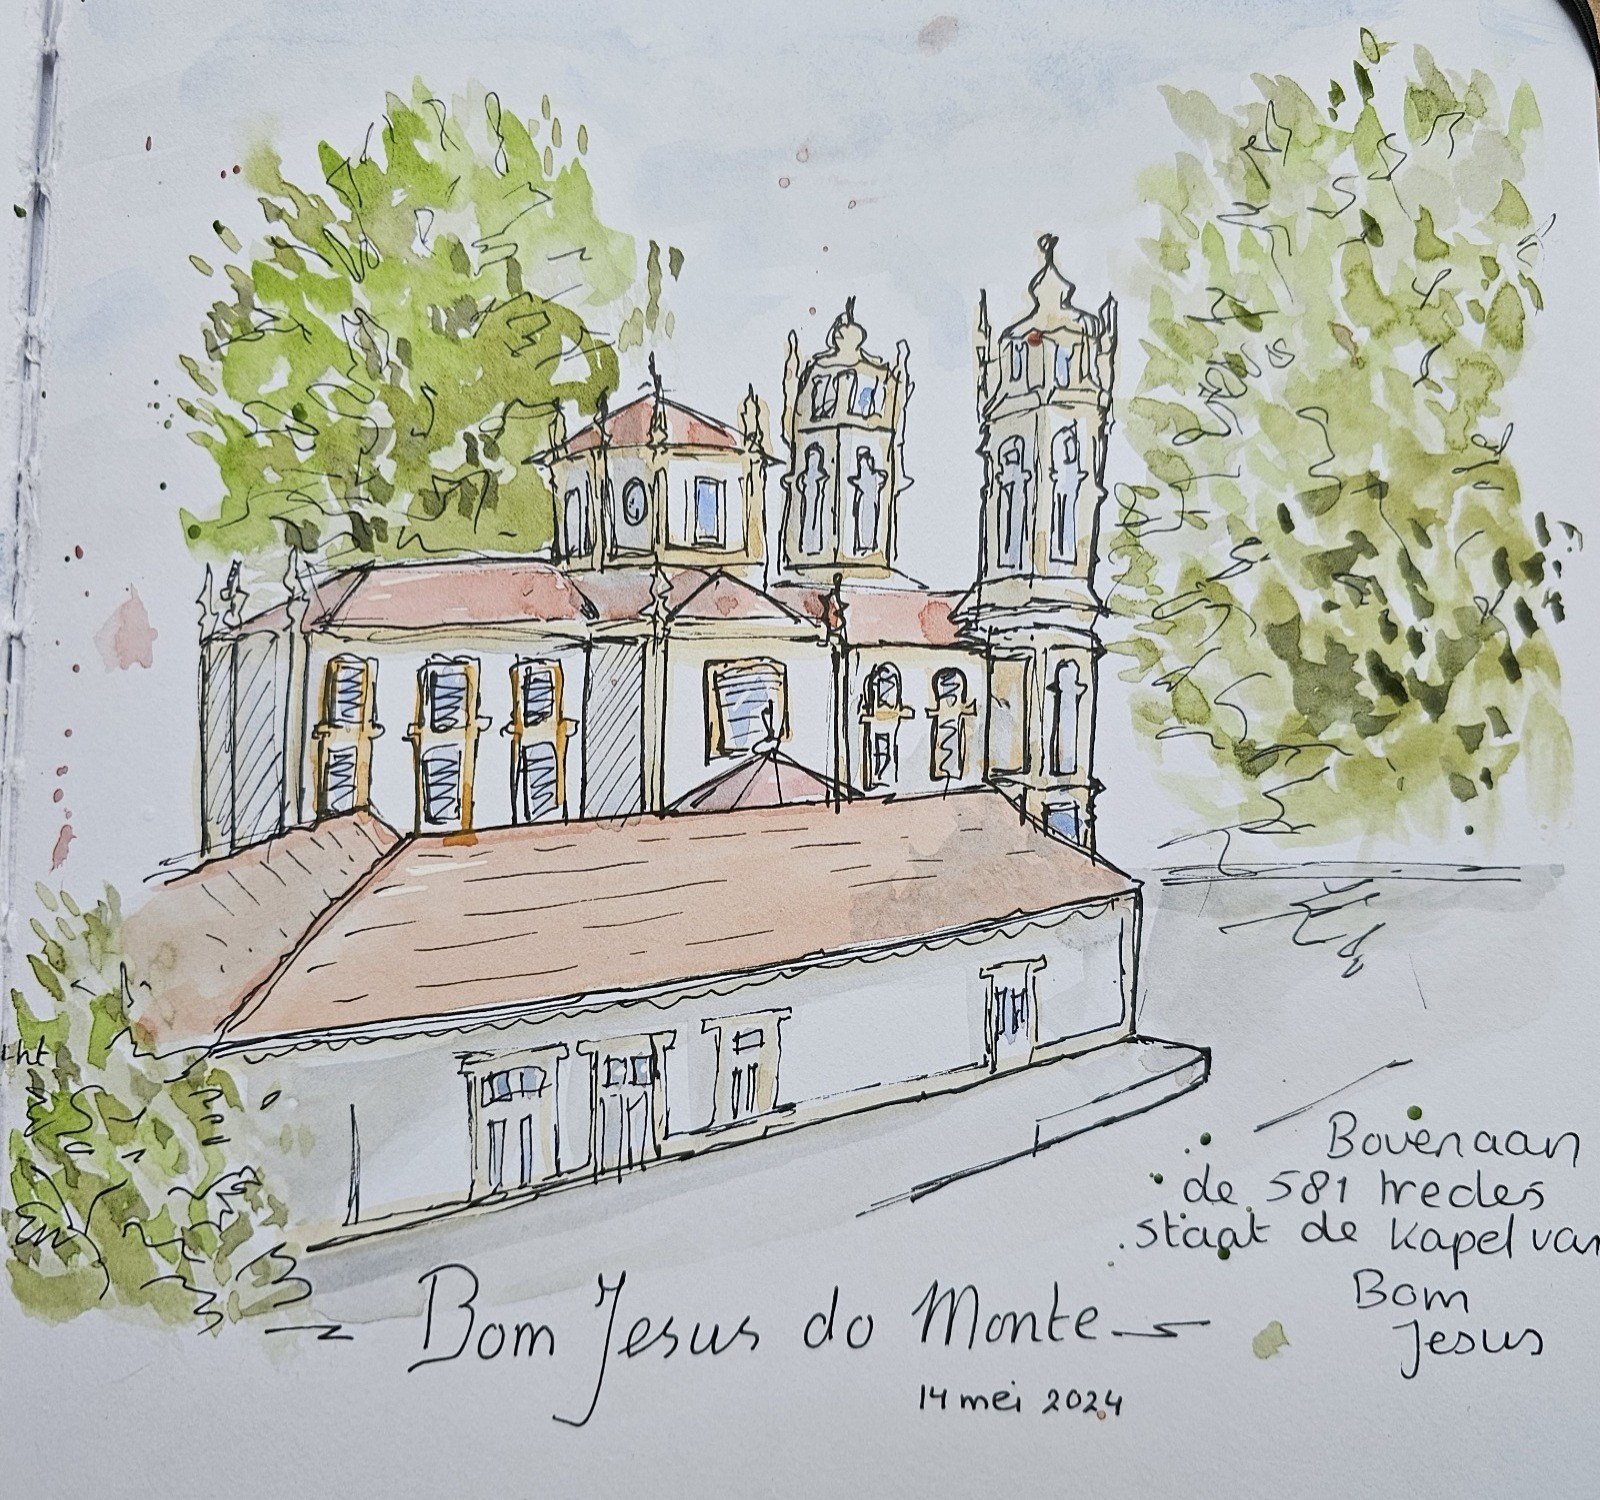 Bovenaan
de 581 tredes
staat de kapel van
Bom
Jesus
Bom Jesus do Monte
14 mei 2024